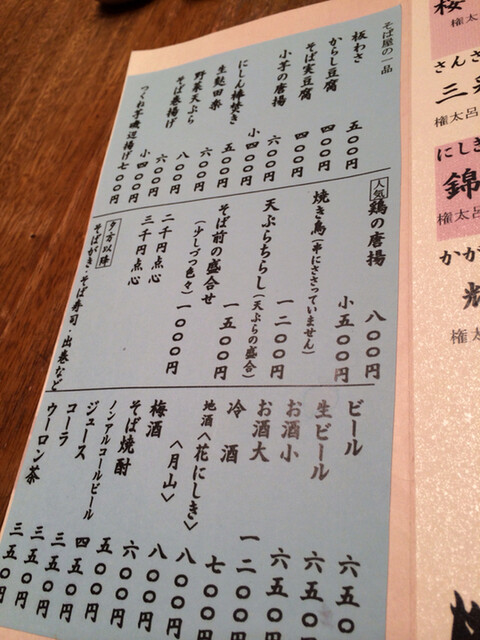 そば屋の一品
板わさ 五〇〇円
からし豆腐 四〇〇円
そば実豆腐 四〇〇円
小芋の唐揚 六〇〇円
小四〇〇円
にしん棒焚き 五〇〇円
生麩田楽 六〇〇円
野菜天ぷら 八〇〇円
そば巻揚げ 六〇〇円
小四〇〇円
つくね芋磯辺揚げ 七〇〇円
人気 鶏の唐揚 八〇〇円
小五〇〇円
焼き鳥(串にささっていません)
天ぷらちらし(天ぷらの盛合) 一二〇〇円
そば前の盛合せ 一五〇〇円
(少しづつ色々) 一〇〇〇円
二千円点心
三千円点心
夕方以降
そばがき・そば寿司・出巻など
ビール 六五〇
生ビール 六五〇円
お酒小 六五〇円
お酒大 一二〇〇円
冷酒 七〇〇円
地酒〈花にしき〉 八〇〇円
〈月山〉 八〇〇円
梅酒 六〇〇円
そば焼酎 五〇〇円
ノンアルコールビール 四五〇円
ジュース 三五〇円
コーラ 三五〇円
ウーロン茶 三五〇円
桜
権太
さんさ
三
権太呂
にしき
錦
権太呂
かが
権太